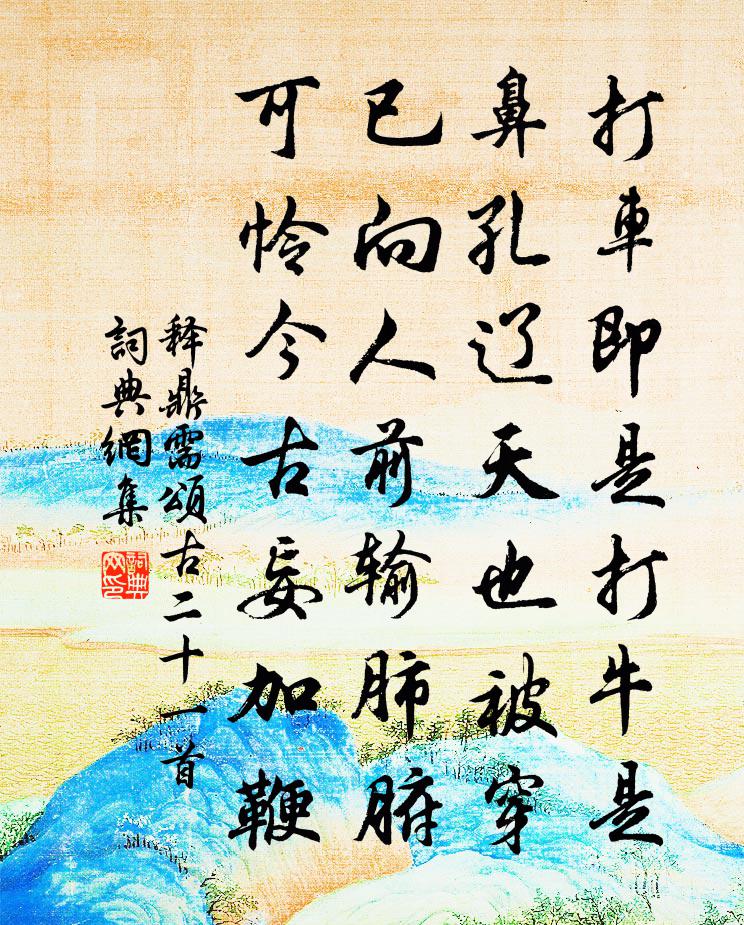 打車即是打牛是
鼻孔辽天也被穿
已向人前输肺腑
可怜今古妄加鞭
释鼎需頌古二十一首
詞典網集
詞典网印